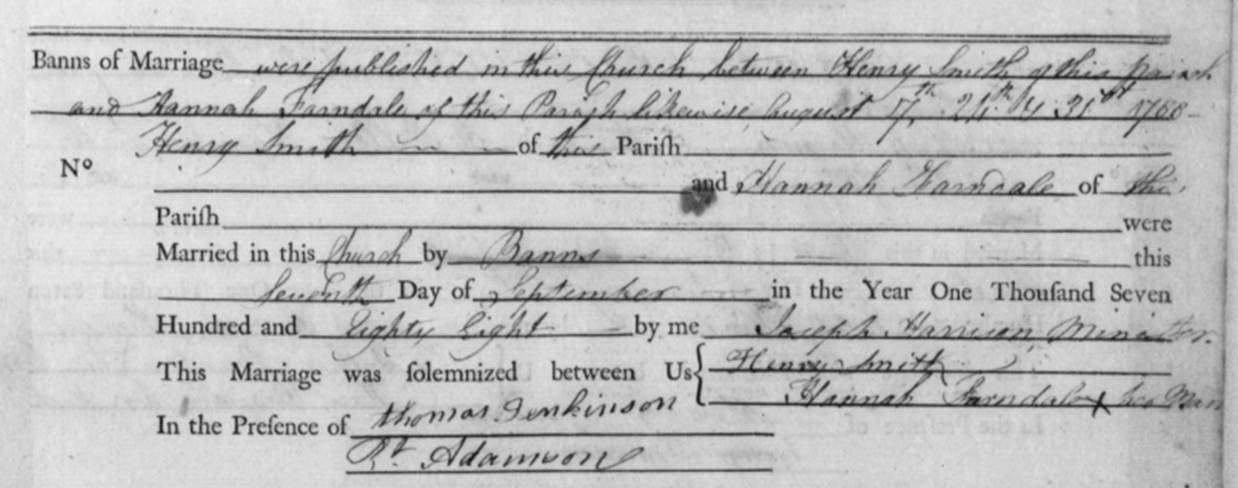 Banns of Marriage were published in this Church between Henry Smith of this parish
and Hannah Farndale of this Parish likewise August 17th 24th & 31st 1788
Henry Smith of this Pariſh
No and Hannah Farndale of this
Pariſh were
Married in this Church by Banns this
Seventh Day of September in the Year One Thouſand Seven
Hundred and Eighty Eight by me Joseph Harrison Minister.
This Marriage was ſolemnized between Us { Henry Smith
Hannah Farndale x her Mark
In the Preſence of thomas Jenkinson
Rt Adamson